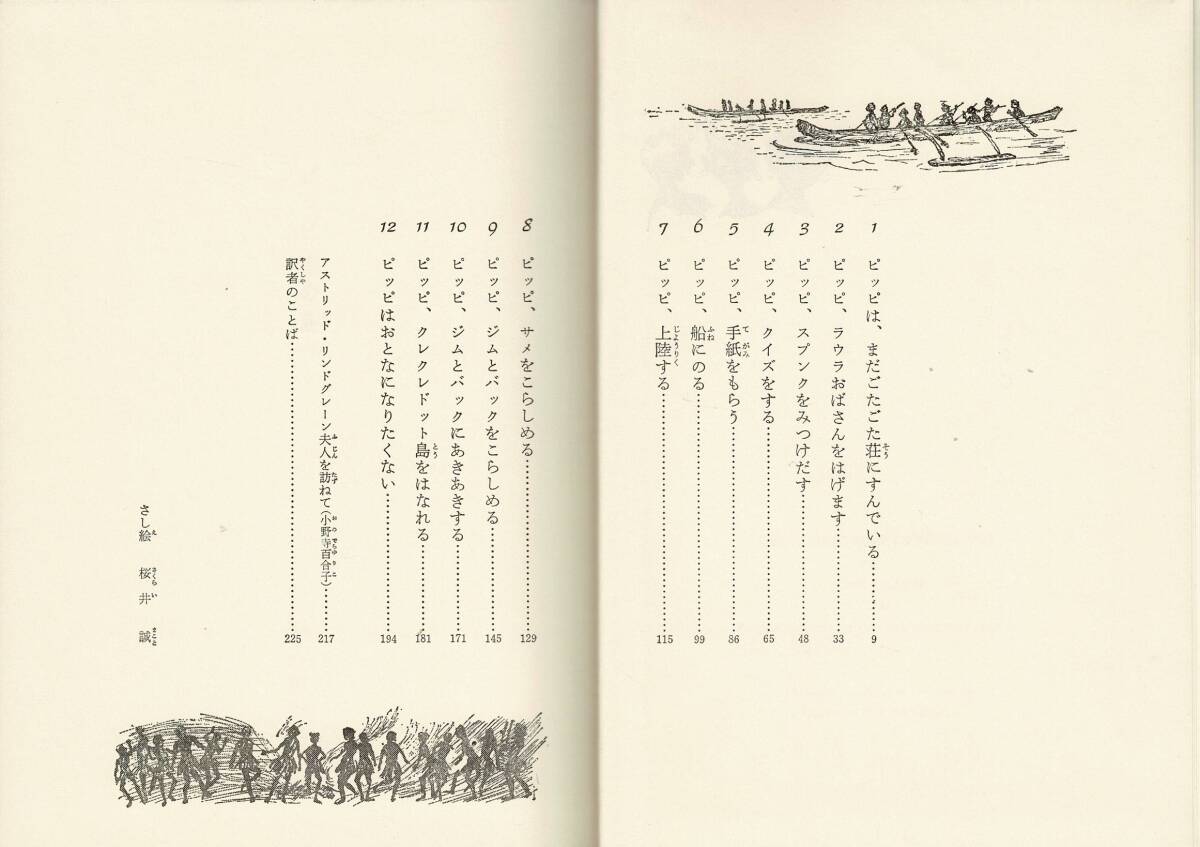 1 ピッピは、まだごたごた荘にすんでいる 9
2 ピッピ、ラウラおばさんをはげます 33
3 ピッピ、スプンクをみつけだす 48
4 ピッピ、クイズをする 65
5 ピッピ、手紙をもらう 86
6 ピッピ、船にのる 99
7 ピッピ、上陸する 115
8 ピッピ、サメをこらしめる 129
9 ピッピ、ジムとバックをこらしめる 145
10 ピッピ、ジムとバックにあきあきする 171
11 ピッピ、クレクレドット島をはなれる 181
12 ピッピはおとなになりたくない 194
アストリッド・リンドグレーン夫人を訪ねて(小野寺百合子) 217
訳者のことば 225
さし絵 桜井 誠